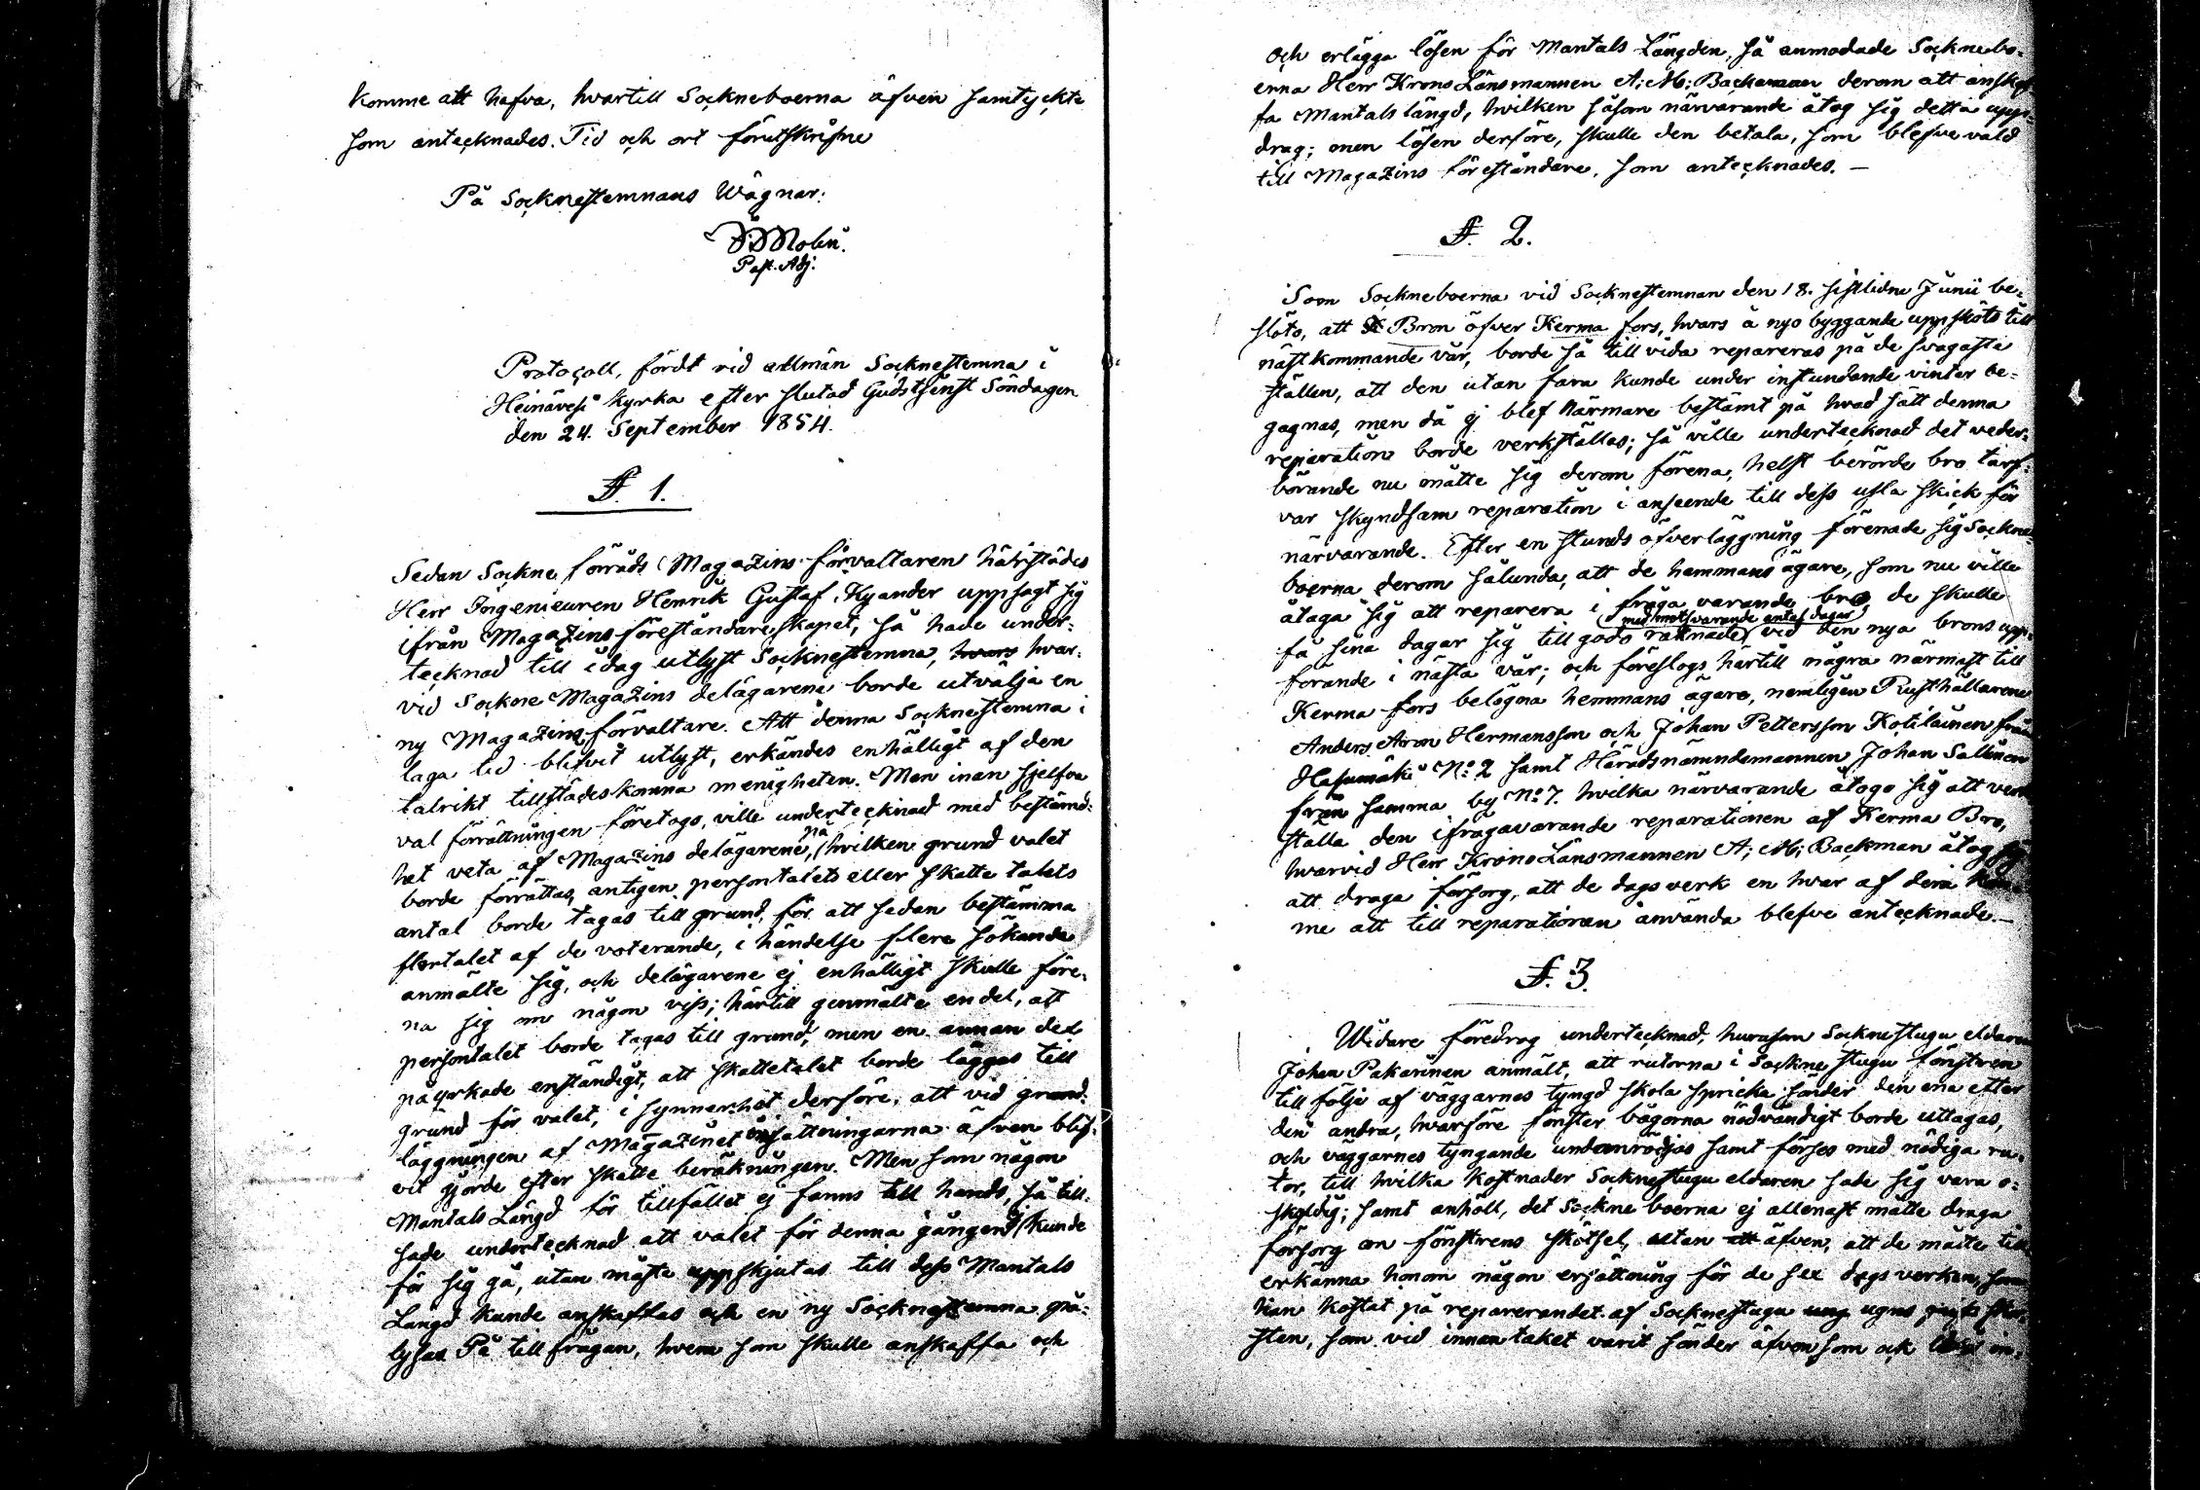 komme att hafva, hvartill Sockneboerna äfven samtyckte
som antecknades. Tid och ort förutskrifne
På Socknestemnans Wägnar:
Past. Adj:
Protocoll, fördt vid allmän Socknestemna i
Heinävesi kyrka efter slutad Gudstjenst Söndagen
den 24. September 1854.
§. 1.
Sedan Sockne förråds Magazins förvaltaren härstädes
Herr Ingenieuren Henrik Gustaf Kyander uppsagt sig
ifrån Magazins föreståndareskapet, så hade under-
tecknad till idag utlyst Socknestemna, hvars hvar-
vid Sockne Magazins delägarene borde utvälja en
ny Magazins förvaltare. Att denna Socknestemna i
laga tid blifvit utlyst, erkändes enhälligt af den
talrikt tillstädeskomna menigheten. Men inan sjelfva
val förrättningen företogs, ville undertecknad med bestämd-
het veta af Magazins delägarene, på hvilken grund valet
borde förrättas, antigen persontalets eller skatte talets
antal borde tagas till grund, för att sedan bestämma
flertalet af de voterande, i händelse flere sökande
anmälte sig, och delägarene ej enhälligt skulle före-
na sig om någon viss; härtill genmälte en del, att
persontalet borde tagas till grund, men en annan del
påyrkade enständigt, att skattetalet borde läggas till
grund för valet, i synnerhet derföre, att vid grund-
läggningen af Magazinet insättningarna äfven blif-
vit gjorde efter skatte beräkningen. Men som någon
Mantals Längd för tillfället ej fanns till hands, så till-
sade undertecknad att valet för denna gången ej kunde
för sig gå, utan måste uppskjutas till dess Mantals
Längd kunde anskaffas och en ny Socknestemna på-
lysas På tillfrågan, hvem som skulle anskaffa och
och erlägga lösen för Mantals Längden, så anmodade Socknebo-
erna Herr Krono Länsmannen A: M: Backman derom att anskaf-
fa Mantals längd, hvilken såsom närvarande åtog sig detta upp-
drag; men lösen derföre, skulle den betala, som blefve vald
till Magazins föreståndare, som antecknades. —
§. 2.
Som Sockneboerna vid Socknestemnan den 18. sistlidne Junii be-
slöto, att Bron öfver Kerma fors, hvars å nyo byggande uppsköts till
nästkommande vår, borde så till vida repareras på de svagaste
ställen, att den utan fara kunde under instundande vinter be-
gagnas, men då ej blef närmare bestämt på hvad sätt denna
reparation borde verkställas; så ville undertecknad det veder-
börande nu måtte sig derom förena, helst berörde bro tarf-
var skyndsam reparation i anseende till dess usla skick för
närvarande. Efter en stunds öfverläggning förenade sig Sockne-
boerna derom sålunda, att de hemmans ägare, som nu ville
åtaga sig att reparera i fråga varande bro, de skulle
med motsvarande antal dagar
få sina dagar sig till godo räknade vid den nya brons upp-
förande i nästa vår; och föreslogs härtill några närmast till
Kerma fors belägna hemmans ägare, nemligen Rusthållarene
Anders Aron Hermansson och Johan Pettersson Kotilainen från
Hasumäki No: 2 samt Häradsnämndemannen Johan Sallinen
från samma by No 7. hvilka närvarande åtogo sig att verk-
ställa den ifrågavarande reparationen af Kerma Bro,
hvarvid Herr Krono Länsmannen A: M: Backman åtog sig
att draga försorg, att de dagsverk en hvar af dem kom-
me att till reparationen använda blefve antecknade. —
§. 3.
Widare föredrog undertecknad, hurusom Socknestugu eldaren
Johan Pakarinen anmält, att rutorna i Sockne stugu fönstren
till följe af väggarnes tyngd skola spricka sönder den ena efter
den andra, hvarföre fönster bågorna nödvändigt borde uttagas,
och väggarnes tyngande undanrödjas samt förses med nödiga ru-
tor, till hvilka kostnader Socknestugu eldaren sade sig vara o-
skyldig; samt anhöll, det Sockne boerna ej allenast måtte draga
försorg om fönstrens skötsel, utan äfven, att de måtte till-
erkänna honom någon ersättning för de sex dagsverken, som
han kostat på reparerandet af Socknestugu ugns
sten, som vid innantaket varit sönder äfvensom ock